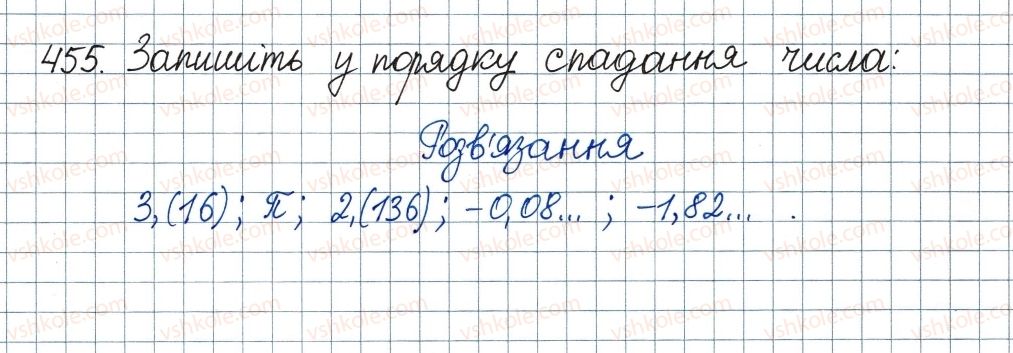 455. Запишіть у порядку спадання числа:
Розв'язання
3,(16); π; 2,(136); -0,08...; -1,82... .